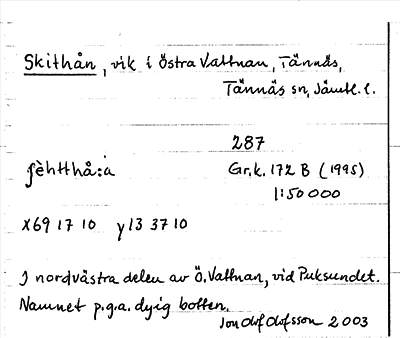 Skithån, vik i Östra Vattnan, Tännäs,
Tännäs sn, Jämtl. l.
287
ʃèhtthå:a Gr.k. 172 B (1995)
1:50 000
x69 17 10 y13 37 10
I nordvästra delen av Ö. Vattnan, vid Puksundet.
Namnet p.g.a. dyig botten.
Jon Olof Olofsson 2003